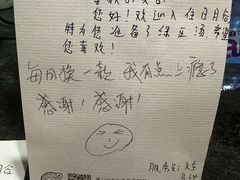 您好！欢迎入住日月台，
特为您准备了绿豆汤，希望
您喜欢！
每日换一款 我有点上瘾了
感谢！感谢！
服务员：